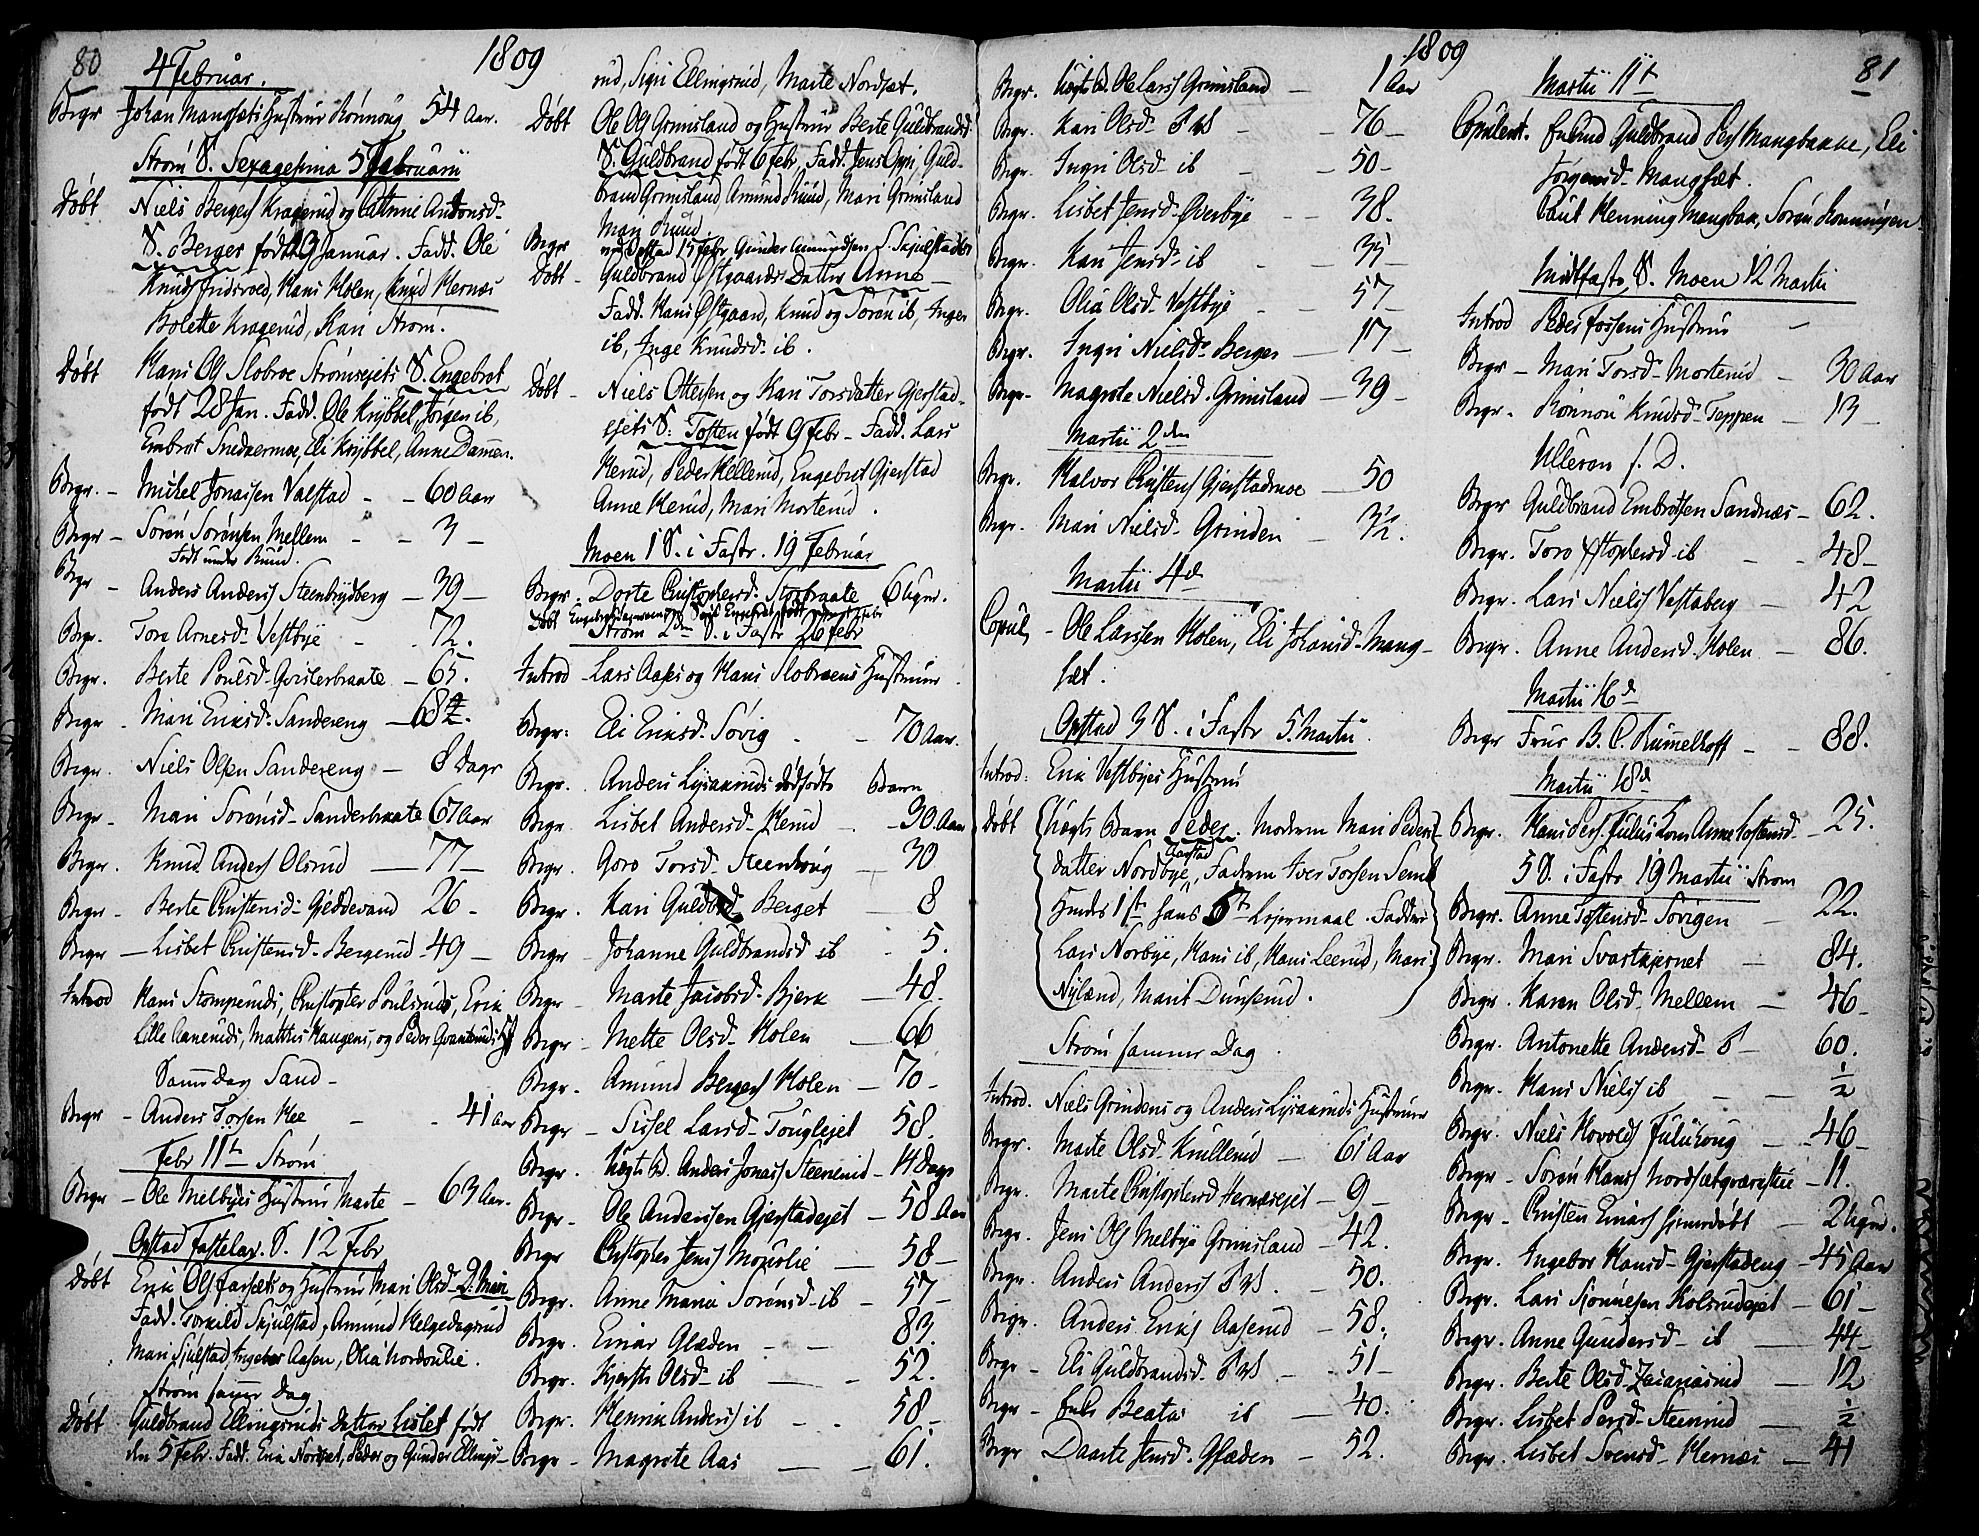 80
1809
4 Februar.
Begr Johan Mangsæts Hustrue Rønnoug 54 Aar.
Strøm S. Sexagesima 5 Februarii
Døbt Niels Bergers Kragerud og Anne Antonsd.
S. Berger født 9 Januar. Fadd. Ole
Hans Holen, Knud Hernæs
Bolette Kragerud, Kari Strøm.
Døbt Hans Ols Slobroe Strømsejets S. Engebret
født 28 Jan. Fadd. Ole Krybbel, Jørgen ib,
Embret Snedkermoe, Eli Krybbel, Anne Damen.
Begr. - Mickel Jonassen Valstad - - 60 Aar
Begr - Søren Sørensen Mellem - - 3 -
Født under Rund.
Begr - Anders Anders Steenbrydberg - 39 -
Begr. Tore Arnesd. Vestbye - - 72.
Begr. Berte Poulsd. Gvisterbraate - 65.
Begr - Mari Eriksd. Sandereng - 68
Begr. Niels Olsen Sandereng - 8 Dage
Begr - Mari Sørensd. Sanderbraate 67 Aar
Begr. Knud Anders Olsrud - 77 -
Begr - Berte Christensd. Gjeddevand 26 -
Begr - Lisbet Christensd. Bergerud - 49 -
Introd Hans Stomperuds, Christopher Poulsruds, Erik
Lille Aaneruds, Matthis Haugens, og Peder Qvanteruds H
Samme Dag Sand -
Begr - Anders Torsen Hee - - 41 Aar
Febr 11te Strøm
Begr - Ole Melbyes Hustrue Marte - 63 Aar.
Opstad Fastelav. S. 12 Febr
Døbt Erik Ols Farsæts og Hustrue Mari Olsd. D. Mari
Fadd. Torkild Skjulstad, Amund Helgedagsrud
Mari Sjulstad, Ingebor Aasen, Olia Nordenlie.
Strøm samme Dag
Døbt Guldbrand Ellingsruds Datter Lisbet født
den 5 Febr. Fadd. Erik Nordsæt, Peder og Gunder Ellings-
rud, Sigri Ellingsrud, Marte Nordsæt.
Døbt Ole Ols Grimsland og Hustrue Berte Guldbrandsd.
S. Guldbrand født 6 Febr, Fadd. Jens Opri, Guld-
brand Grimsland, Amund Ruud, Mari Grimsland
Mari Ruud.
Begr ved Opstad 15 Febr Gunder Amundsen S. Skjulstad
Døbt - Guldbrand Østgaards Datter Anne
Fadd. Hans Østgaard, Knud og Søren ib, Inger
ib, Inge Knudsd. ib.
Døbt - Niels Ottersen og Kari Torsdatter Gjerstad-
ejets S. Tosten født 9 Febr - Fadd. Lars
Herud, Peder Hellerud, Engebret Gjerstad
Anne Herud, Mari Morterud.
Moen 1 S. i Fastr. 19 Februar
Begr. Dorte Christophersd. Storbraate 6 Uger.
Strøm 2den S. i Fastr 26 Febr
Introd - Lars Aases og Hans Slobroens Hustruer
Begr: Eli Eriksd. Søvig - - 70 Aar.
Begr. Anders Lysaaruds dødfødte Barn
Begr. Lisbet Andersd. Herud - - 30 Aar
Begr. Goro Torsd. Steenhoug - 30
Begr. Kari Guldbrd. Berget - 8
Begr - Johanne Guldbrandsd ib - 5.
Begr - Marte Jacobsd. Bjerk - 48.
Begr. Mette Olsd. Holen - 66
Begr. Amund Bergers Holen - 70 -
Begr - Sissel Larsd. Touglejet 58.
Begr. Uægte B. Anders Jonass Steenerud - 14 Dage
Begr - Ole Andersen Gjerstadejet - 58 Aar
Begr Christopher Jens Mourlie - 58 -
Begr. Anne Maria Sørensd. ib - 57 -
Begr. Einar Glæden - - 83.
Begr. Kjersti Olsd. ib - - 52.
Begr. Henrik Anders ib - - 58 -
Begr - Magrete Aas - - 61.
1809
81
Begr. Uægte B. Ole Lars Grimsland - 1 Aar
Begr. Kari Olsd. - - 76 -
Begr. Ingri Olsd. ib - - 50 -
Begr. Lisbet Jensd. Overbye - - 38.
Begr. Kari Jensd. ib - 35 -
Begr. Olia Olsd. Vestbye - - 57 -
Begr. Ingri Nielsd. Berger - 17 -
Begr. Magrete Nielsd. Grimsland - 39 -
Martii 2den
Begr. Halvor Christens Gjerstadmoe - 50
Begr. Mari Nielsd. Grinden - 3½.
Martii 4de
Copul. - Ole Larsen Holen, Eli Johansd. Mang-
sæt.
Opstad 3 S. i Fastr 5. Martii
Introd: Erik Vestbyes Hustrue
Døbt Uægte Barn Peder. Moderen Mari Peders-
datter Nordbye, Aarstad Faderen Iver Torsen Semb
Hendes 1ste hans 6te Lejermaal. Faddere
Lars Norbye, Hans ib, Hans Leerud, Mari
Nyland, Marit Dunserud.
Strøm samme Dag.
Introd. Niels Grindens og Anders Lysaaruds Hustruer
Begr. Marte Olsd. Krullerud - 61 Aar
Begr. Marte Christophersd Hernæsejet - 9 -
Begr. Jens Ols Melbye Grimsland - 42.
Begr. Anders Anders - 50.
Begr. Anders Eriks Aaserud - 58.
Begr - Eli Guldbrandsd. - 51 -
Begr - Enke Beata ib - 40.
Begr Daarte Jensd. Glæden - 52.
Martii 11te
Copulert. Enkmd Guldbrand Pers Mangbakke, Eli
Jørgensd. Mangsæt.
Caut Henning Mangbak, Søren Henningen.
Midtfaste S. Moen 12 Martii
Introd Peder Fossens Hustrue -
Begr - Mari Torsd. Morterud - 30 Aar
Begr. Rønnou Knudsd. Teppen - 13 -
Ulleron s. D.
Begr Guldbrand Embretsen Sandnæs - 62.
Begr. Tore Christophersd ib - - 48 -
Begr. Lars Niels Vestaberg - 42
Begr. Anne Andersd. Holen - 86.
Martii 16de
Begr Frue B. C. Rumelhoff - - 88.
Martii 18de
Begr. Hans Pers. Anne Tostensd. - 25.
5 S. i Fastr. 19 Martii Strøm
Begr. Anne Tostensd. Sørigen - 22.
Begr. Mari Svartkjernet - 84.
Begr. Karen Olsd. Mellem - 46 -
Begr. Antonette Andersd. - 60.
Begr. Hans Niels ib - - ½
Begr. Niels Hovolds Fuluhoug - 46 -
Begr. Søren Hans Nordsætqværnstue - 11.
Begr - Christen Einars hjemmedøbt - 2 Uger.
Begr. Ingebor Hansd. Gjerstadeng - 45 Aar
Begr. Lars Sjonnesen Kolsrudejet - 61 -
Begr. Anne Gundersd. ib - 44 -
Begr. Berte Olsd. Zakariasrud - 12
Begr. Lisbet Persd. Steenrud - ½
Begr. Lisbet Svensd. Hernæs - 41